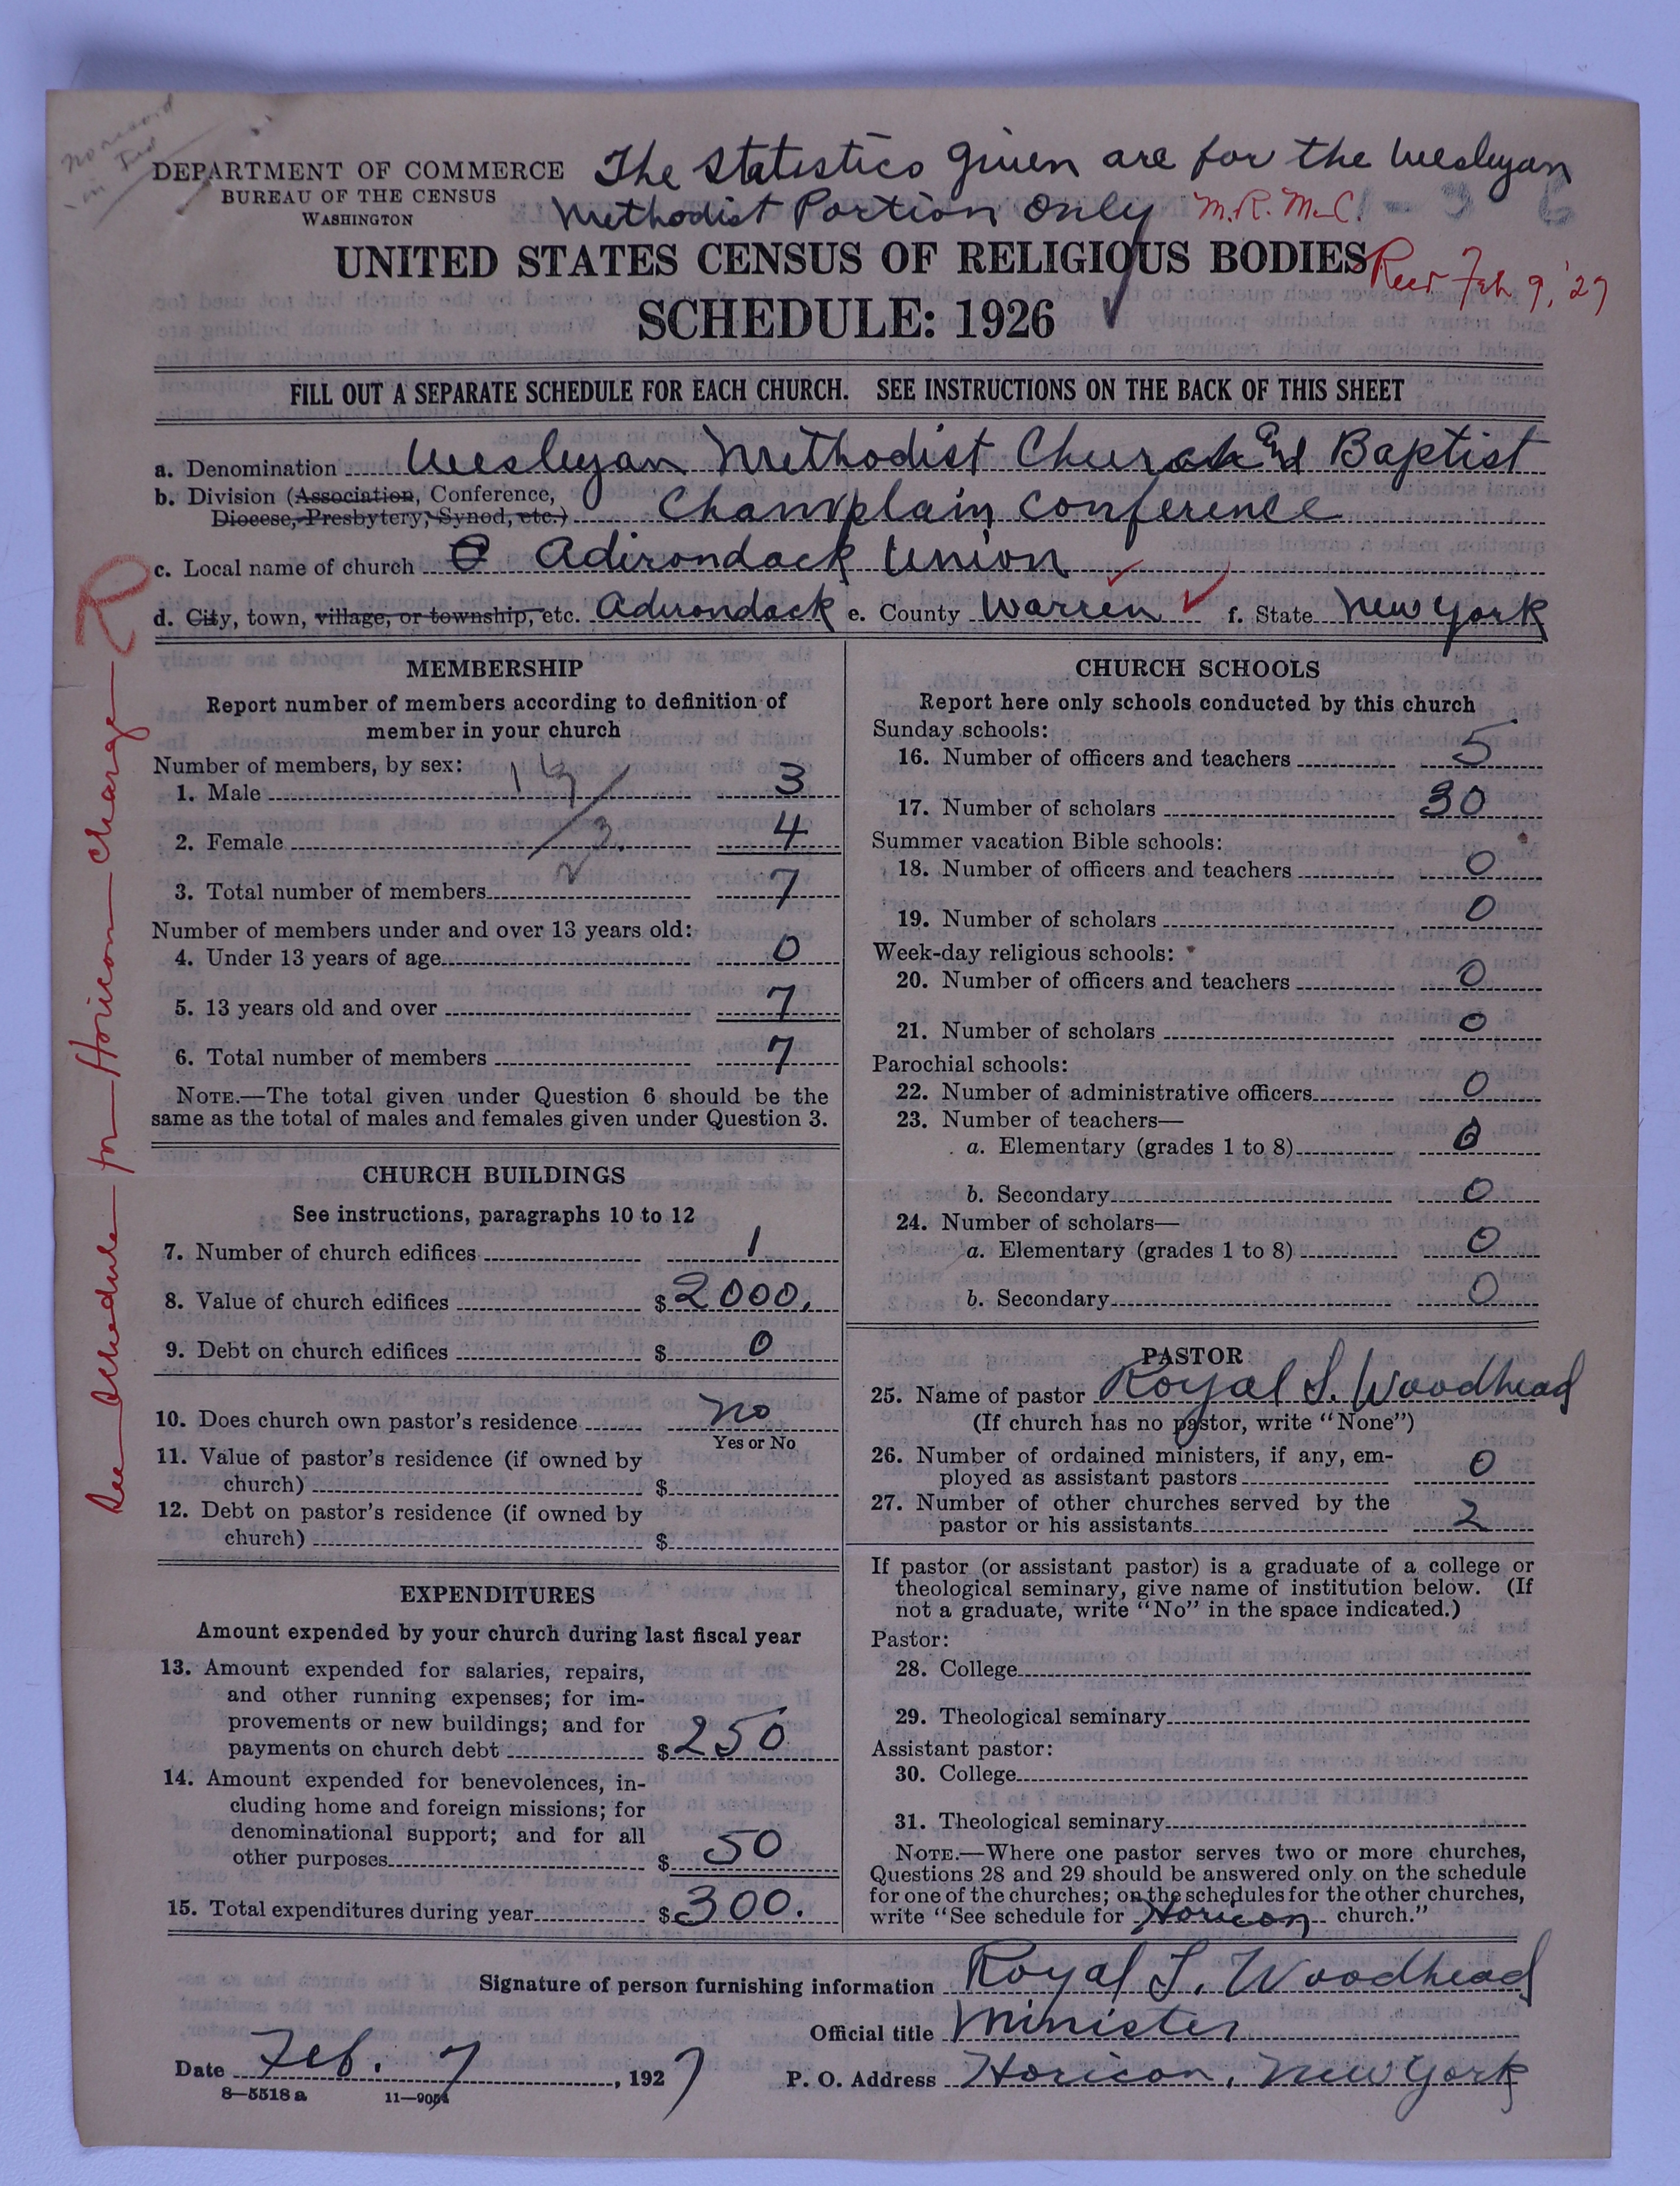 No record
in Ind
DEPARTMENT OF COMMERCE
BUREAU OF THE CENSUS
WASHINGTON
The Statistics given are for the Wesleyan
Methodist Portion Only M.R. McC. 1-3 6
UNITED STATES CENSUS OF RELIGIOUS BODIES
Recd Feb 9, '27
SCHEDULE: 1926
FILL OUT A SEPARATE SCHEDULE FOR EACH CHURCH. SEE INSTRUCTIONS ON THE BACK OF THIS SHEET
a. Denomination Wesleyan Methodist Church and Baptist
b. Division (Association, Conference,
Diocese, Presbytery, Synod, etc.) Champlain Conference
c. Local name of church Adirondack Union
d. City, town, village, or township, etc. Adirondack e. County Warren f. State New York
See Schedule for Horicon charge R
MEMBERSHIP
Report number of members according to definition of
member in your church
Number of members, by sex:
1. Male 3
2. Female 4
3. Total number of members 7
Number of members under and over 13 years old:
4. Under 13 years of age 0
5. 13 years old and over 7
6. Total number of members 7
NOTE.—The total given under Question 6 should be the
same as the total of males and females given under Question 3.
CHURCH BUILDINGS
See instructions, paragraphs 10 to 12
7. Number of church edifices 1
8. Value of church edifices $2000.
9. Debt on church edifices $ 0
10. Does church own pastor's residence No
Yes or No
11. Value of pastor's residence (if owned by
church) $
12. Debt on pastor's residence (if owned by
church) $
EXPENDITURES
Amount expended by your church during last fiscal year
13. Amount expended for salaries, repairs,
and other running expenses; for im-
provements or new buildings; and for
payments on church debt $250
14. Amount expended for benevolences, in-
cluding home and foreign missions; for
denominational support; and for all
other purposes $ 50
15. Total expenditures during year $300.
CHURCH SCHOOLS
Report here only schools conducted by this church
Sunday schools:
16. Number of officers and teachers 5
17. Number of scholars 30
Summer vacation Bible schools:
18. Number of officers and teachers 0
19. Number of scholars 0
Week-day religious schools:
20. Number of officers and teachers 0
21. Number of scholars 0
Parochial schools:
22. Number of administrative officers 0
23. Number of teachers—
a. Elementary (grades 1 to 8) 0
b. Secondary 0
24. Number of scholars—
a. Elementary (grades 1 to 8) 0
b. Secondary 0
PASTOR
25. Name of pastor Royal S. Woodhead
(If church has no pastor, write "None")
26. Number of ordained ministers, if any, em-
ployed as assistant pastors 0
27. Number of other churches served by the
pastor or his assistants 2
If pastor (or assistant pastor) is a graduate of a college or
theological seminary, give name of institution below. (If
not a graduate, write "No" in the space indicated.)
Pastor:
28. College
29. Theological seminary
Assistant pastor:
30. College
31. Theological seminary
NOTE.—Where one pastor serves two or more churches,
Questions 28 and 29 should be answered only on the schedule
for one of the churches; on the schedules for the other churches,
write "See schedule for Horicon church."
Signature of person furnishing information Royal S. Woodhead
Official title Minister
Date Feb. 7, 1927 P. O. Address Horicon, New York
8—5518 a 11—9054